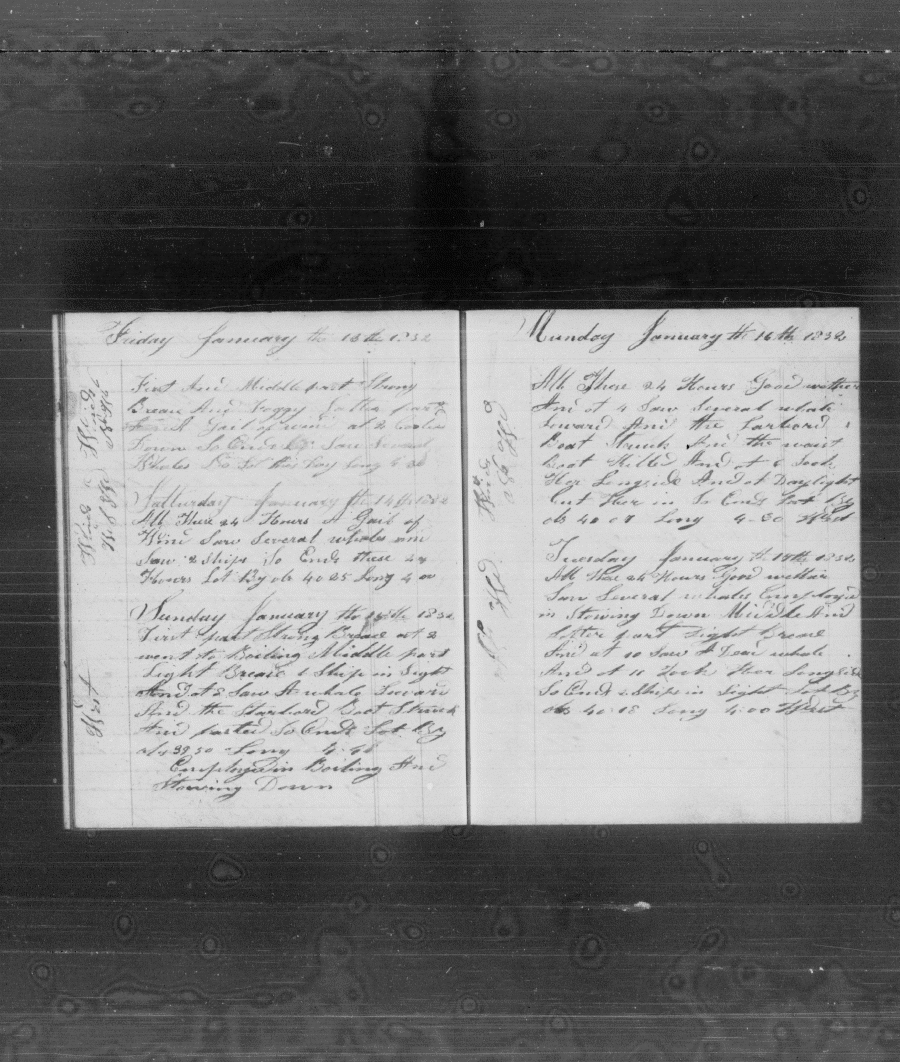 Friday January th 13th 1832
First And Middle part Strong
Brease And Foggy Latter part
A Gail of wind at 2
Down So Ends Saw Several
Whales Lot Long 4 30
Satturday January th 14th 1832
All These 24 Hours A Gail of
Wind Saw Several whales and
Saw 2 Ships So Ends these 24
Hours Lot By obs 40 25 Long 4 00
Sunday January th 15th 1832
First part Strong Brease at 2
went to Boiling Middle part
Light Brease 1 Ship in Sight
And at 8 Saw A whale
And the Starboard Boat Struck
And parted So Ends Lot By
obs 39 50 Long
Employd in Boiling And
Stowing Down
Wind
West
Munday January th 16th 1832
All These 24 Hours Good wether
And at 4 Saw Several whale
Leward And the Larbord
Boat Struck And the waist
boat Killed And at 6 Took
Her Longside And at Daylight
Cut Her in So Ends Lot By
obs 40 07 Long 4-30 West
Tuesday January th 17th 1832
All These 24 Hours Good wether
Saw Several whales Employd
in Stowing Down Middle And
Latter part Light Brease
And at 10 Saw A Dead whale
And at 11 Took Her Longside
So Ends 2 Ships in Sight Lot By
obs 40 18 Long 4:00 West
Wind